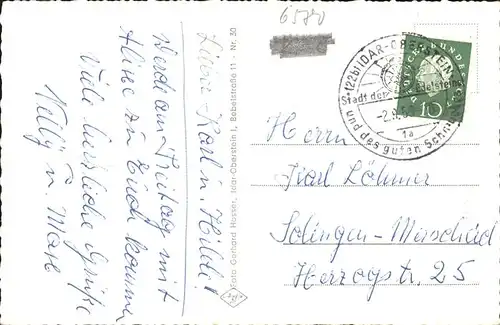 65780
Liebe Karl u. Hilde!
Werde am Freitag mit
Aline zu Euch komme
Viele herzliche Grüße
Nelly u. Max
Foto Gerhard Hosser, Idar-Oberstein 1, Bebelstraße 11 · Nr. 50
(22b) IDAR-OBERSTEIN
Stadt der Edelsteine
-2.9.
1a
und des guten Schmucks
DEUTSCHE BUNDESPOST
10
Herrn
Karl Löhmer
Solingen-Merscheid
Herzogstr. 25